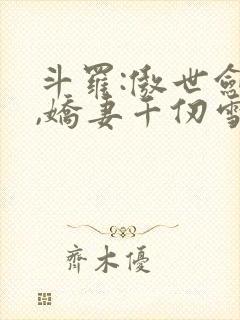 斗羅:傲世劍
,嬌妻千仞雪
齊木優